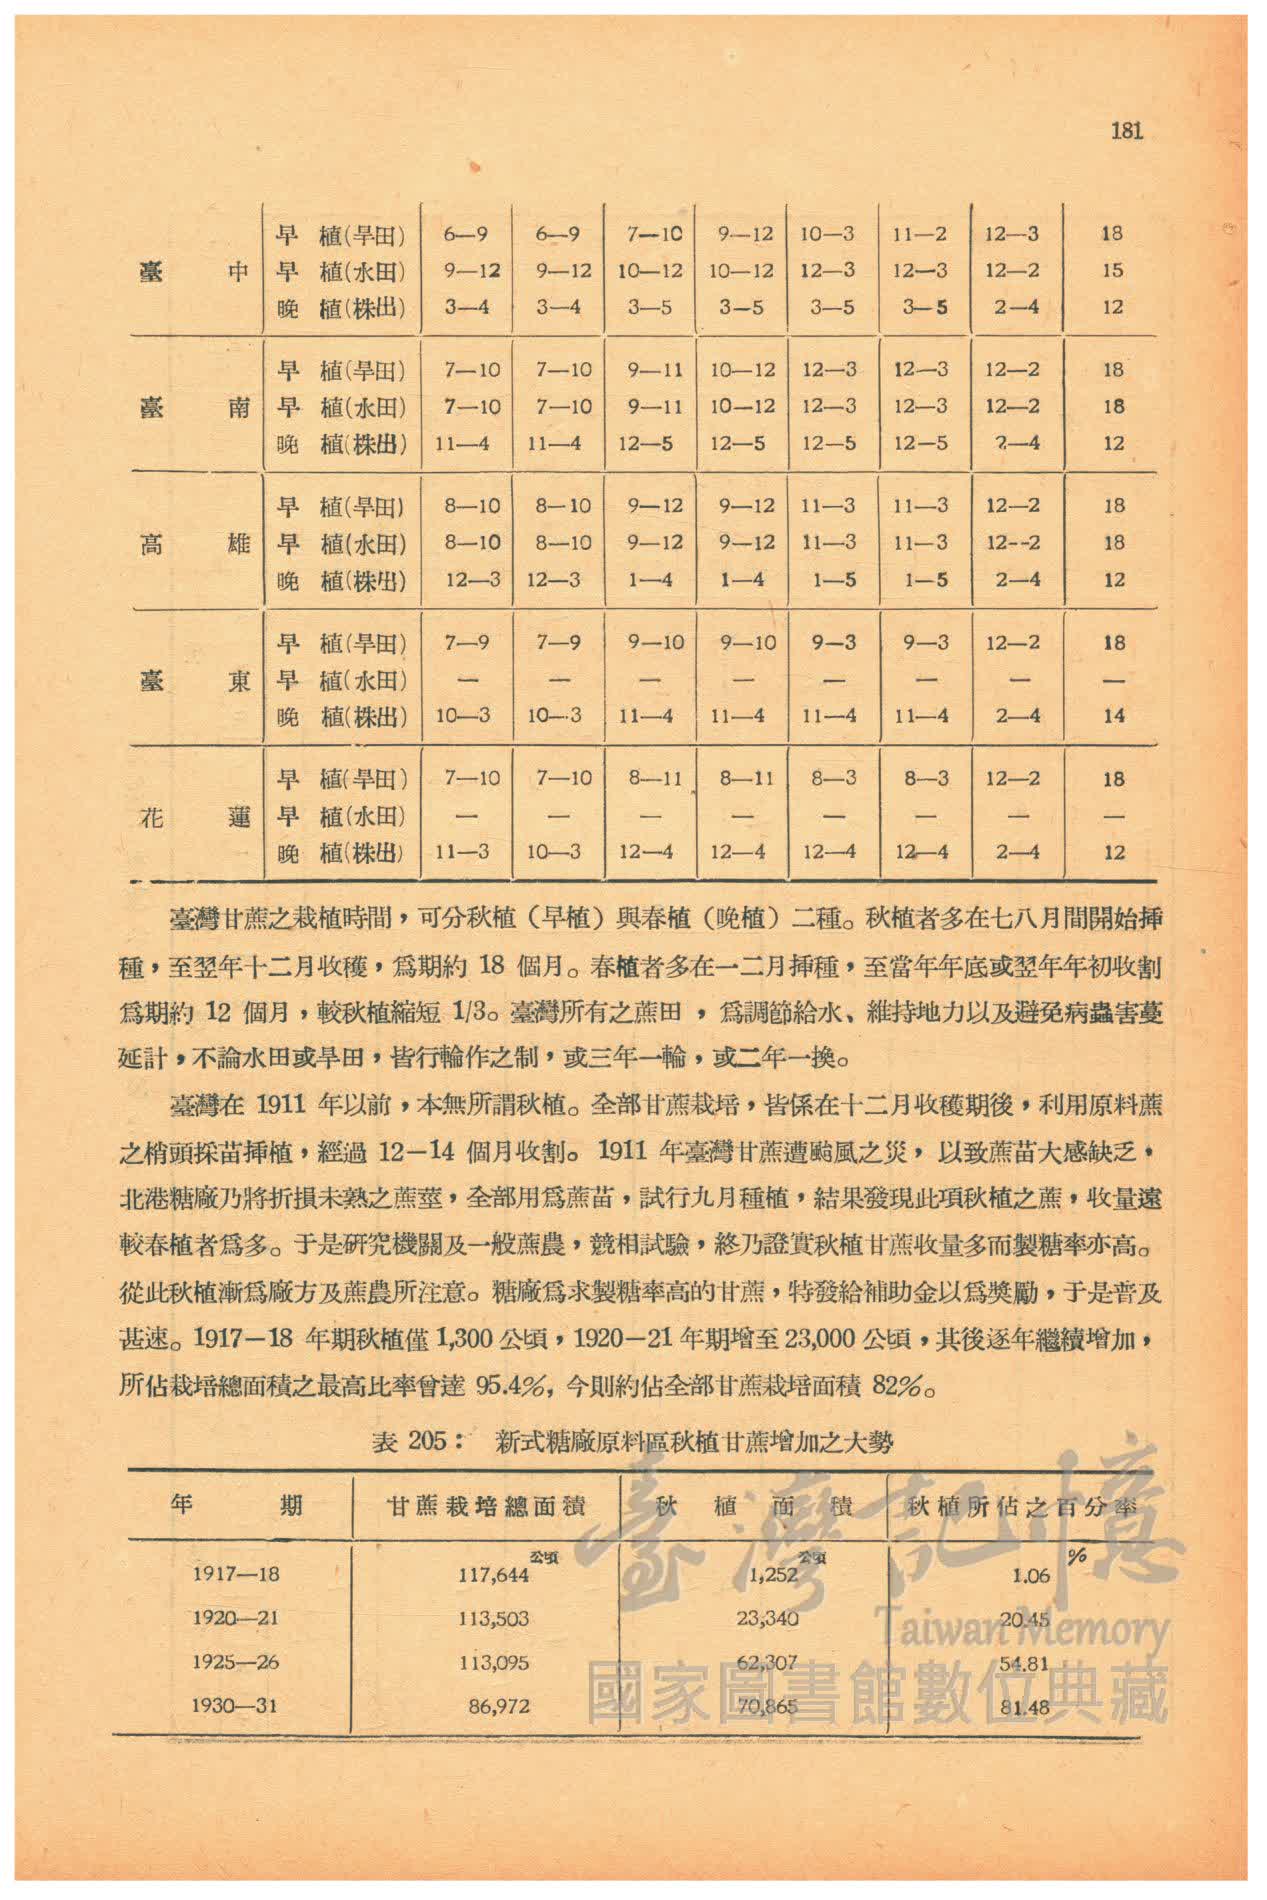 181
早 植(旱田) 6—9 6—9 7—10 9—12 10—3 11—2 12—3 18
臺 中 早 植(水田) 9—12 9—12 10—12 10—12 12—3 12—3 12—2 15
晚 植(株出) 3—4 3—4 3—5 3—5 3—5 3—5 2—4 12
早 植(旱田) 7—10 7—10 9—11 10—12 12—3 12—3 12—2 18
臺 南 早 植(水田) 7—10 7—10 9—11 10—12 12—3 12—3 12—2 18
晚 植(株出) 11—4 11—4 12—5 12—5 12—5 12—5 2—4 12
早 植(旱田) 8—10 8—10 9—12 9—12 11—3 11—3 12—2 18
高 雄 早 植(水田) 8—10 8—10 9—12 9—12 11—3 11—3 12--2 18
晚 植(株出) 12—3 12—3 1—4 1—4 1—5 1—5 2—4 12
早 植(旱田) 7—9 7—9 9—10 9—10 9—3 9—3 12—2 18
臺 東 早 植(水田) — — — — — — — —
晚 植(株出) 10—3 10—3 11—4 11—4 11—4 11—4 2—4 14
早 植(旱田) 7—10 7—10 8—11 8—11 8—3 8—3 12—2 18
花 蓮 早 植(水田) — — — — — — — —
晚 植(株出) 11—3 10—3 12—4 12—4 12—4 12—4 2—4 12
臺灣甘蔗之栽植時間，可分秋植（早植）與春植（晚植）二種。秋植者多在七八月間開始揷
種，至翌年十二月收穫，爲期約 18 個月。春植者多在一二月揷種，至當年年底或翌年年初收割
爲期約 12 個月，較秋植縮短 1/3。臺灣所有之蔗田，爲調節給水、維持地力以及避免病蟲害蔓
延計，不論水田或旱田，皆行輪作之制，或三年一輪，或二年一換。
臺灣在 1911 年以前，本無所謂秋植。全部甘蔗栽培，皆係在十二月收穫期後，利用原料蔗
之梢頭採苗揷植，經過 12—14 個月收割。1911 年臺灣甘蔗遭颱風之災，以致蔗苗大感缺乏，
北港糖廠乃將折損未熟之蔗莖，全部用爲蔗苗，試行九月種植，結果發現此項秋植之蔗，收量遠
較春植者爲多。于是研究機關及一般蔗農，競相試驗，終乃證實秋植甘蔗收量多而製糖率亦高。
從此秋植漸爲廠方及蔗農所注意。糖廠爲求製糖率高的甘蔗，特發給補助金以爲獎勵，于是普及
甚速。1917—18 年期秋植僅 1,300 公頃，1920—21 年期增至 23,000 公頃，其後逐年繼續增加，
所佔栽培總面積之最高比率曾達 95.4%, 今則約佔全部甘蔗栽培面積 82%。
表 205： 新式糖廠原料區秋植甘蔗增加之大勢
年 期 甘蔗栽培總面積 秋 植 面 積 秋植所佔之百分率
公頃 公頃 %
1917—18 117,644 1,252 1.06
1920—21 113,503 23,340 20.45
1925—26 113,095 62,307 54.81
1930—31 86,972 70,865 81.48
臺灣記憶
Taiwan Memory
國家圖書館數位典藏